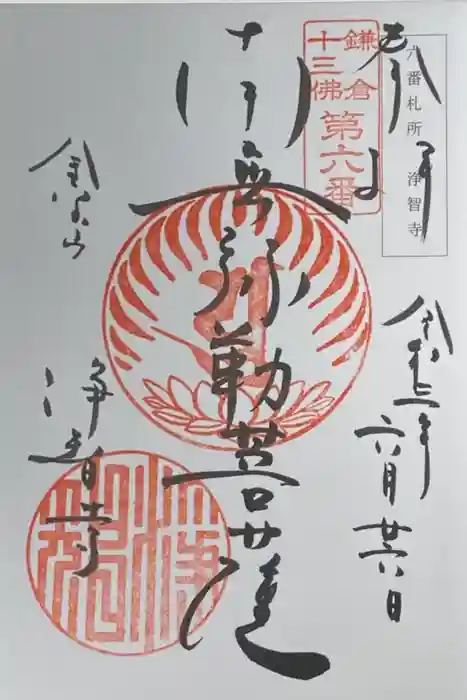 六番札所 浄智寺
鎌倉
十三佛
第六番
奉拝
令和二年
六月廿六日
南無弥勒菩薩
金宝山
浄智寺